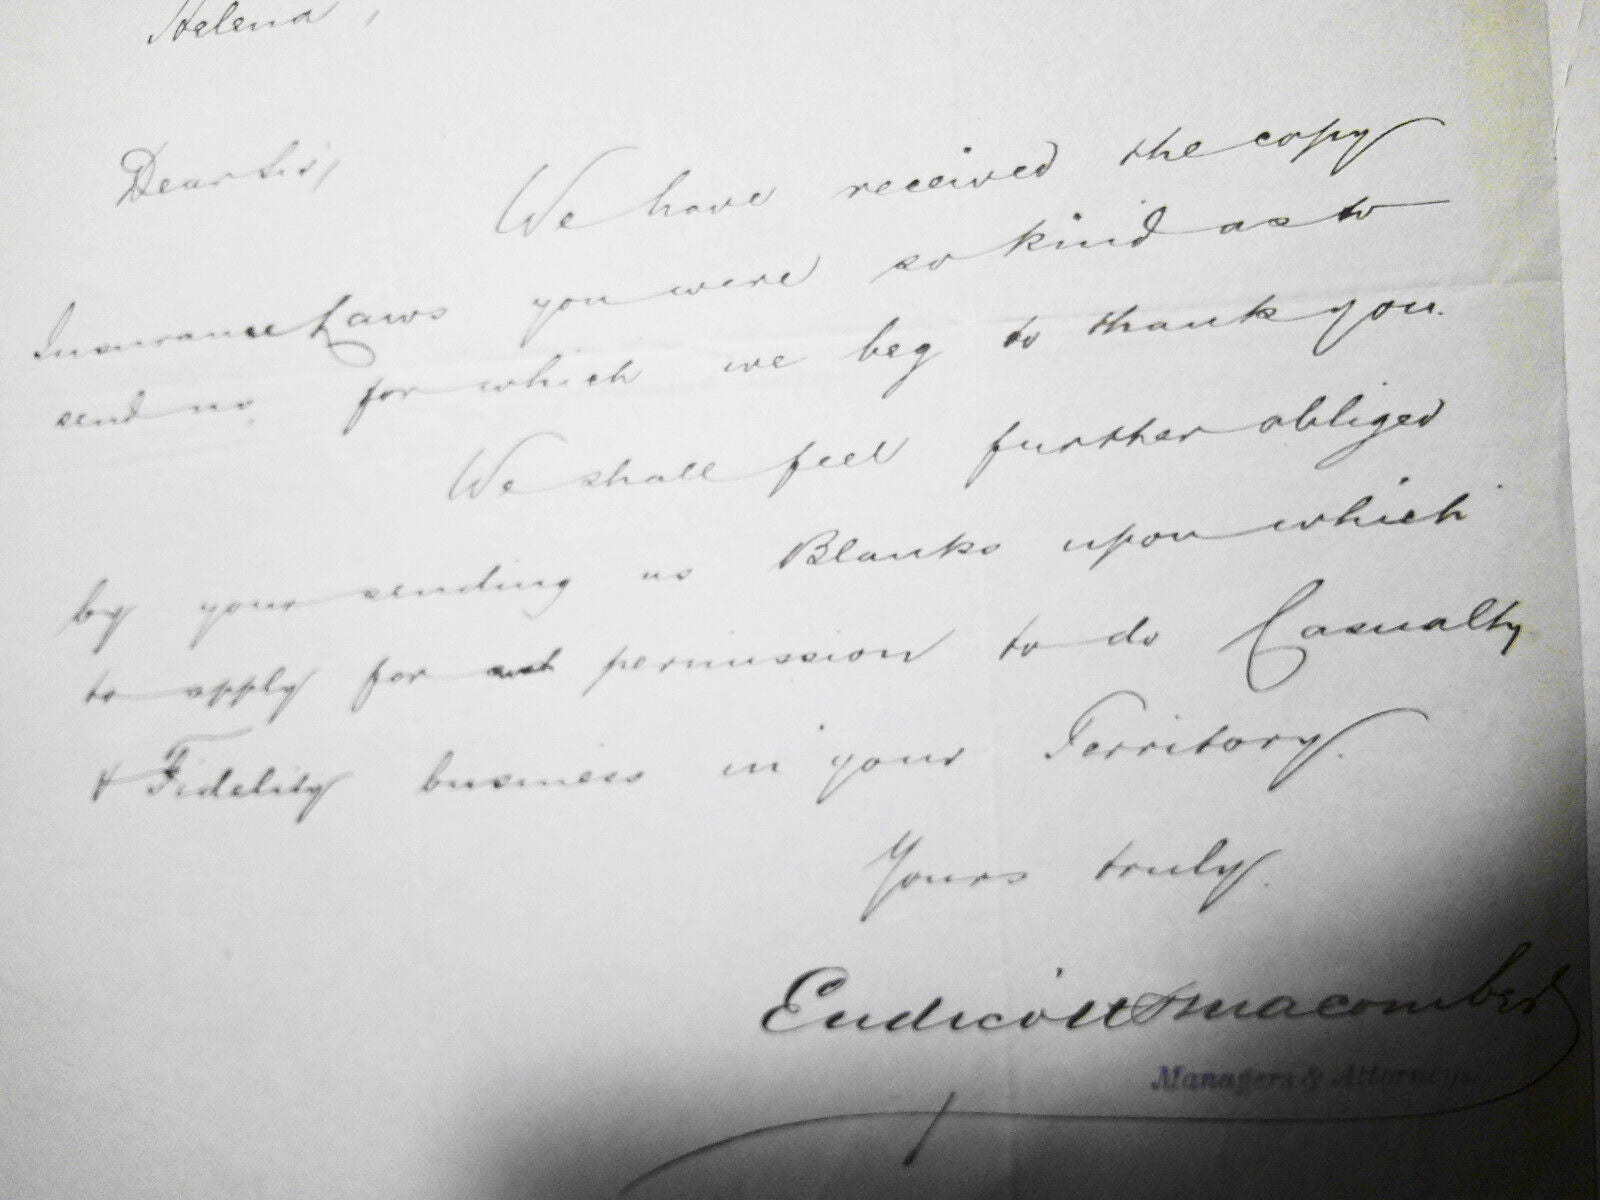 Helena,
Dear Sir,
We have received the copy
Insurance Laws you were so kind as to
send us, for which we beg to thank you.
We shall feel further obliged
by your sending us Blanks upon which
to apply for permission to do Casualty
& Fidelity business in your Territory.
Yours truly.
Endicott & Macomber
Managers & Attorneys.